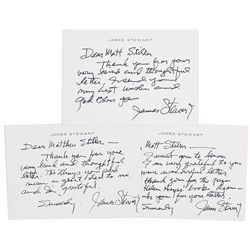 JAMES STEWART
Dear Matt Stiller
Thank you for your
very kind and thoughtful
letter, I send you
my very best wishes and
God Bless you
James Stewart
JAMES STEWART
Dear Matthew Stiller —
Thank you for your
very kind and thoughtful
letter. The things you said
mean a great deal to me.
I'm grateful
Sincerely
James Stewart
JAMES STEWART
Matt Stiller
I want you to know
I am very grateful to you
wonderful letter
Thank you for the
Sincerely
James Stewart